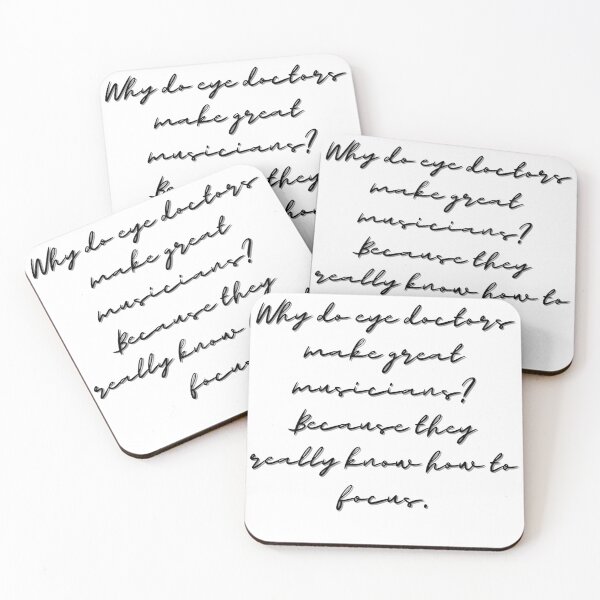 Why do eye doctors
make great
musicians?
they
Why do eye doctors
make great
musicians?
Because they
really know how to
Why do eye doctors
make great
musicians?
Because they
really know
focus.
Why do eye doctors
make great
musicians?
Because they
really know how to
focus.